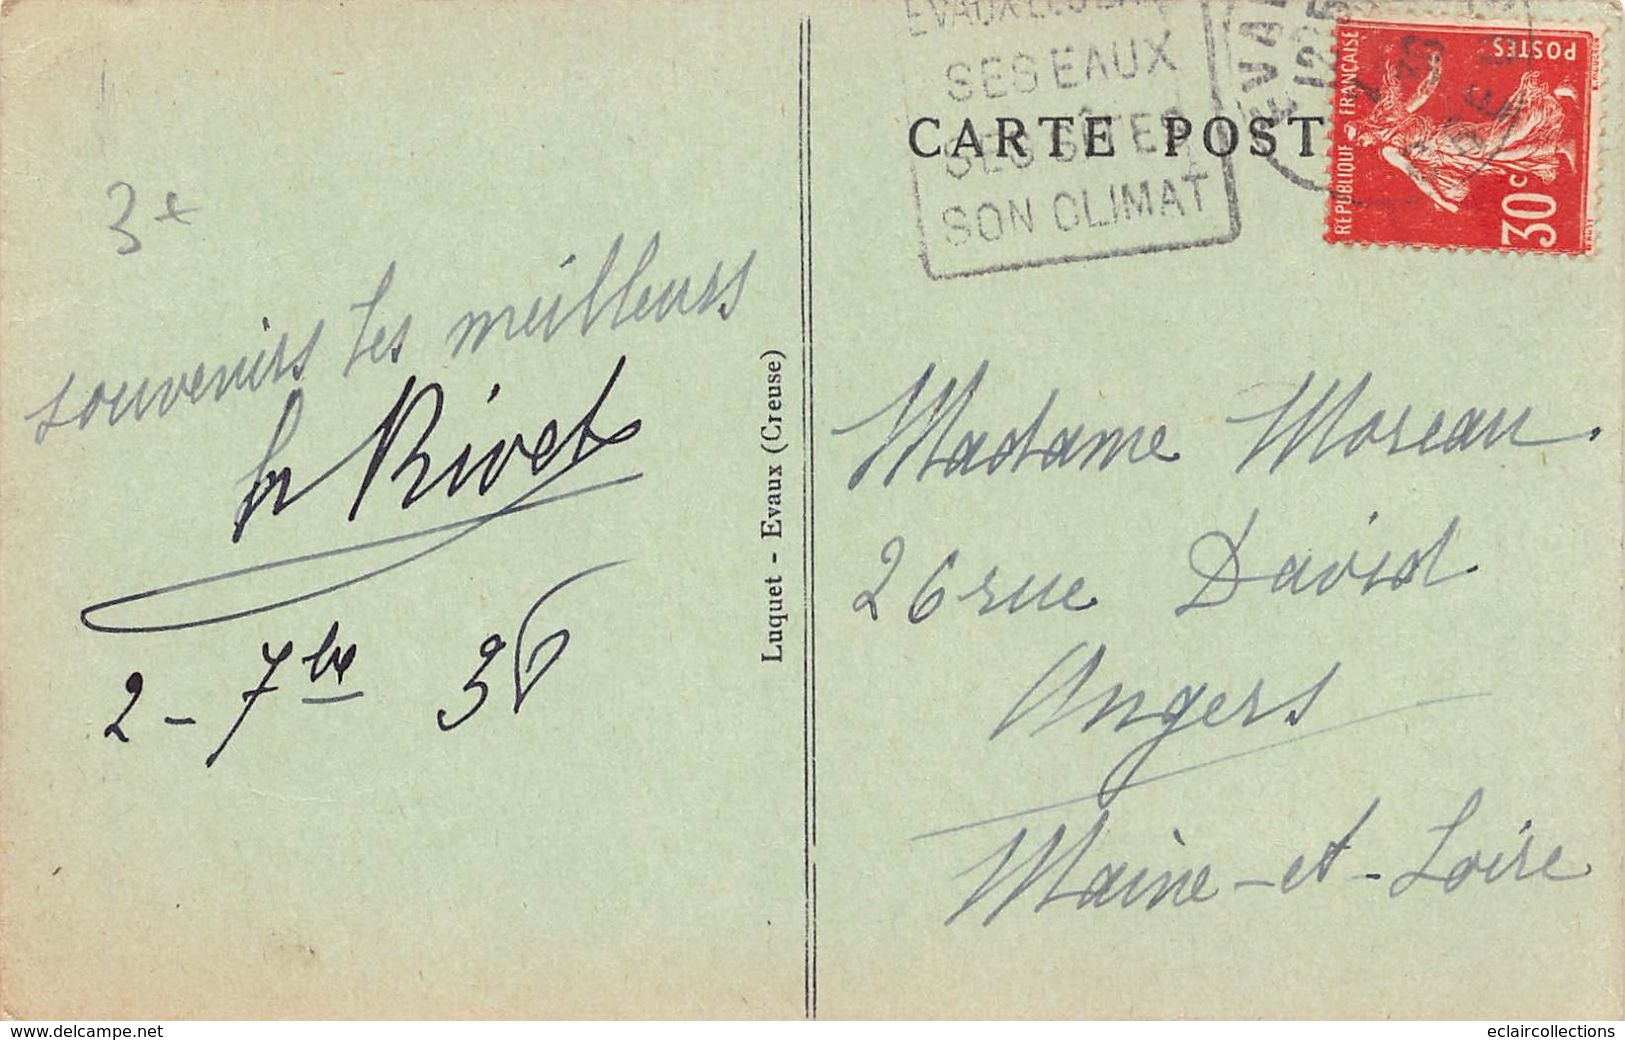 3+
souvenirs les meilleurs
Rivet
2 - 7bre 36
Luquet - Evaux (Creuse)
EVAUX LES BAINS
SES EAUX
SES SITES
SON CLIMAT
CARTE POST
EVAUX
REPUBLIQUE FRANÇAISE
POSTES
30c
Madame Moreau.
26 rue David
Angers
Maine-et-Loire
www.delcampe.net
eclaircollections